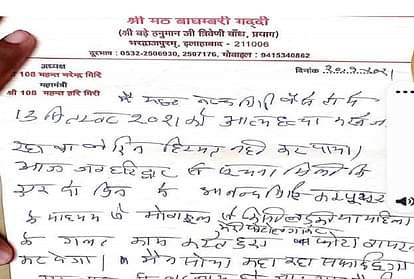 श्री मठ बाघम्बरी गद्दी
(श्री बड़े हनुमान जी त्रिवेणी बाँध, प्रयाग)
भरद्वाजपुरम्, इलाहाबाद - 211006
दूरभाष : 0532-2506930, 2507176, मोबाइल : 9415340862
अध्यक्ष
श्री 108 महन्त नरेन्द्र गिरि
महामंत्री
श्री 108 महन्त हरि गिरी
दिनांक
मै महन्त नरेन्द्र गिरी वैसे मै
13 सितम्बर 2021 को आत्महत्या करने जा
रहा था लेकिन हिम्मत नही कर पाया।
आज जब हरिद्वार से सूचना मिली कि
एक दो दिन मे आनन्द गिरि कम्प्यूटर
के माध्यम से मोबाइल से किसी लड़की या महिला
के गलत काम करते हुए फोटो वायरल
कर देगा। मैने सोचा कहा सफाई दूँगा